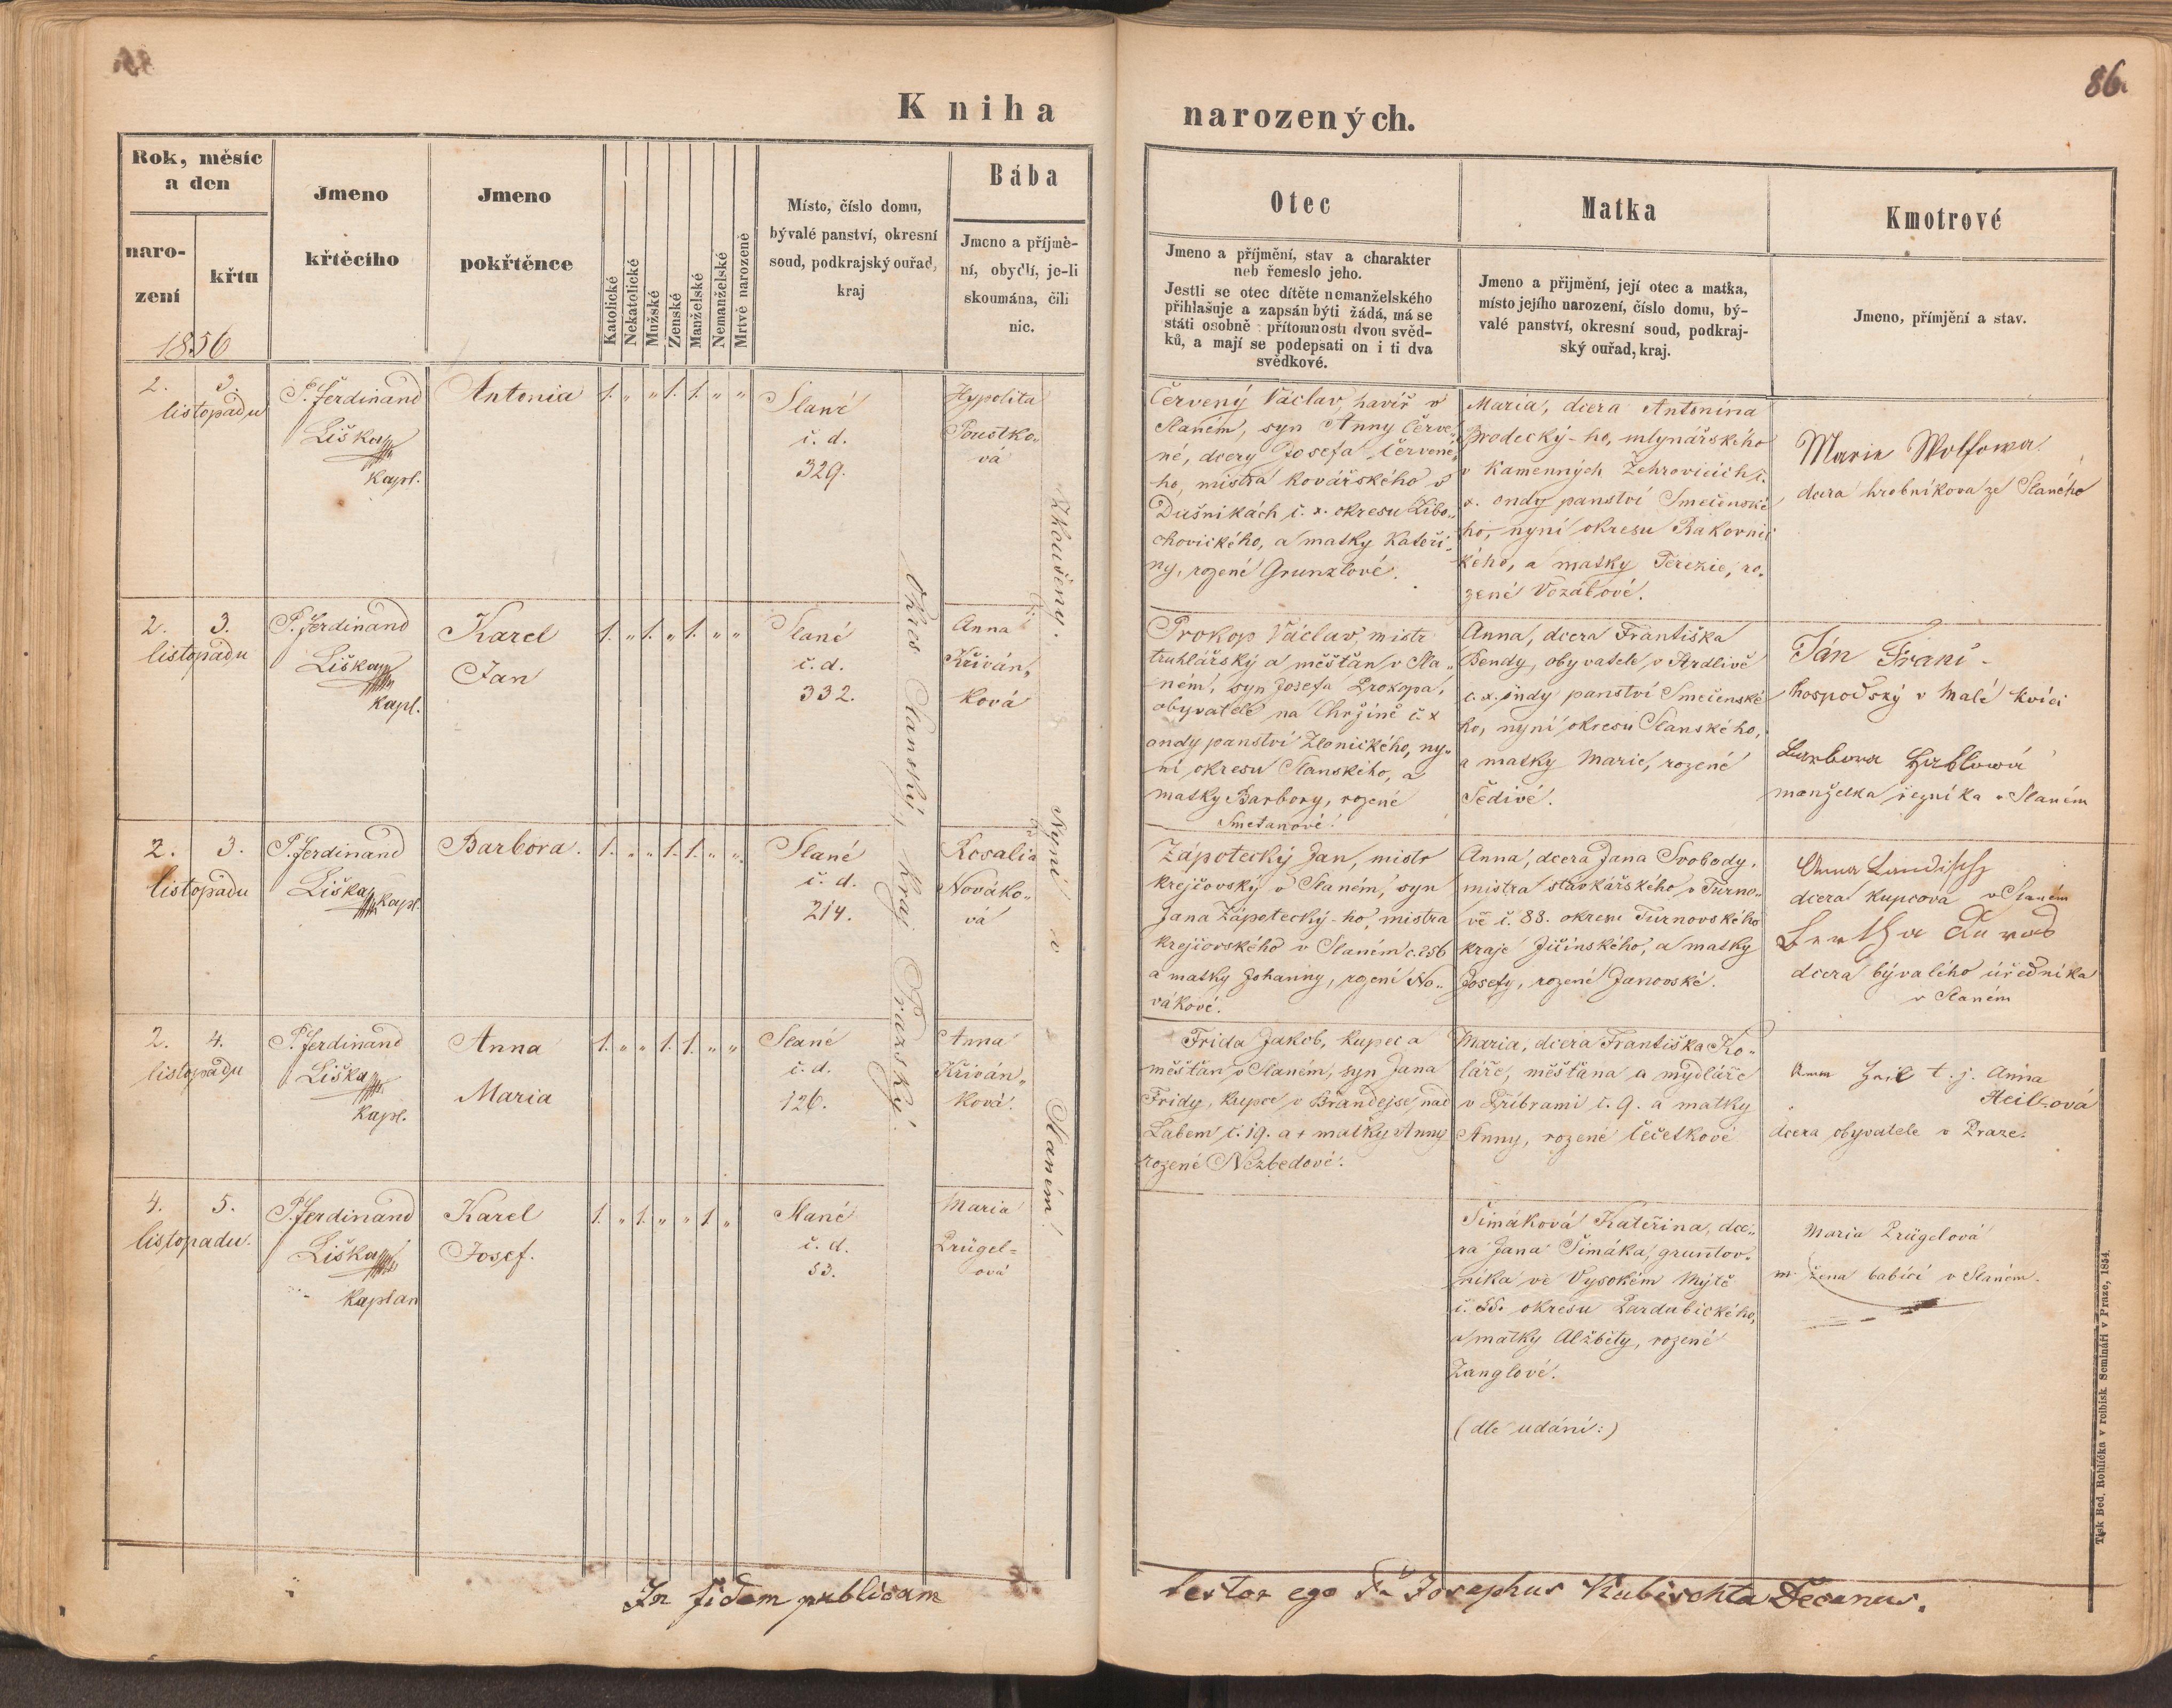 86.
Kniha narozených.
Rok, měsíc
a den
naro-
zení
křtu
1856
Jmeno
křtěcího
Jmeno
pokřtěnce
Katolické
Nekatolické
Mužské
Zenské
Manželské
Nemanželské
Mrtvě narozené
Místo, číslo domu,
bývalé panství, okresní
soud, podkrajský ouřad,
kraj
Bába
Jmeno a příjmě-
ní, obydlí, je-li
skoumána, čili
nic.
Otec
Jmeno a příjmění, stav a charakter
neb řemeslo jeho.
Jestli se otec dítěte nemanželského
přihlašuje a zapsán býti žádá, má se
státi osobně přítomnosti dvou svěd-
ků, a mají se podepsati on i ti dva
svědkové.
Matka
Jmeno a přijmění, její otec a matka,
místo jejího narození, číslo domu, bý-
valé panství, okresní soud, podkraj-
ský ouřad, kraj.
Kmotrové
Jmeno, přímjění a stav.
Okres Slanský, Kraj Pražský.
Zkoušeny. Nyní v Slaném.
2. 3.
listopadu
P. Ferdinand
Liška
kapl.
Antonia
1. „ „ 1. 1. „ „
Slané
č. d.
329.
Hypolita
Poustko„
vá
Červený Václav, havíř v
Slaném, syn Anny Červe„
né, dcery Josefa Červené„
ho, mistra kovářského v
Dušnikách č. x. okresu Libo„
chovického, a matky Kateři„
ny, rozené Grunzlové.
Maria, dcera Antonína
Brodecký-ho, mlynářského
v Kamenných Žehrovicích č.
x. ondy panství Smečenské
ho, nyní okresu Rakovnic
kého, a matky Terezie, ro„
zené Vozábové.
Marie Wolfowa
dcera hrobníkova ze Slaného
2. 3.
listopadu
P. Ferdinand
Liška
kapl.
Karel
Jan
1. „ 1. „ 1. „ „
Slané
č. d.
332.
Anna
Křiván„
ková
Prokop Václav, mistr
truhlářský a měšťan v Sla„
ném, syn Josefa Prokopa,
obyvatele na Chržíně č. x
ondy panství Zlonického, ny„
ní okresu Slanského, a
matky Barbory, rozené
Smetanové.
Anna, dcera Františka
Bendy, obyvatele v Drdlivě
č. x. ondy panství Smečenské
ho, nyní okresu Slanského,
a matky Marie, rozené
Šedivé.
Ján
hospodský v Malé Kvíci
Barbora
manželka řezníka v Slaném
2. 3.
listopadu
P. Ferdinand
Liška kapl.
Barbora.
1. „ „ 1. 1. „ „
Slané
č. d.
214.
Rosalia
Nováko„
vá
Zápotecký Jan, mistr
krejčovský v Slaném, syn
Jana Zápotecký-ho, mistra
krejčovského v Slaném č. 256
a matky Johanny, rozené No„
vákové.
Anna, dcera Jana Svobody,
mistra stávkářského v Turno„
vě č. 88. okresu Turnovského
kraje Jičínského, a matky
Josefy, rozené Janovské.
Anna
dcera kupcova v Slaném
dcera bývalého úředníka
v Slaném
2. 4.
listopadu
P. Ferdinand
Liška
kapl.
Anna
Maria
1. „ „ 1. 1. „ „
Slané
č. d.
126.
Anna
Křiván„
ková.
Frida Jakob, kupec a
měšťan v Slaném, syn Jana
Fridy, kupce v Brandejse, nad
Labem č. 19. a + matky Anny
rozené Nezbedové.
Maria, dcera Františka Ko„
láře, měšťana a mydláře
v Příbrami č. 9. a matky
Anny, rozené Čečetkové
t. j. Anna
Heilzová
dcera obyvatele v Praze.
4. 5.
listopadu.
P. Ferdinand
Liška
kaplan
Karel
Josef.
1. „ 1. „ „ 1. „
Slané
č. d.
53.
Maria
Prügel=
ová
Šimáková Kateřina, dce„
ra Jana Šimáka, gruntov„
níka ve Vysokém Mýtě
č. 55. okresu Pardubického,
a matky Alžběty, rozené
Zanglové.
(dle udání:)
Maria Prügelová
žena babící v Slaném.
In fidem publicam testor ego Josephus Kubischta Decanus.
Tisk Bed. Rohlíčka v rolbísk Semináři v Praze, 1854.